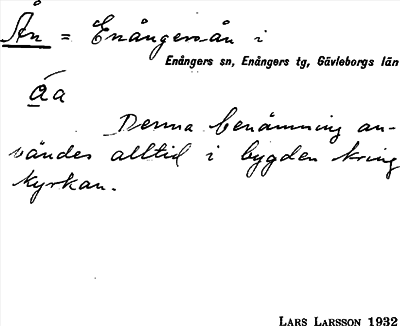 Ån = Enångersån i
Enångers sn, Enångers tg, Gävleborgs län
åa
Denna benämning an-
vändes alltid i bygden kring
kyrkan.
LARS LARSSON 1932